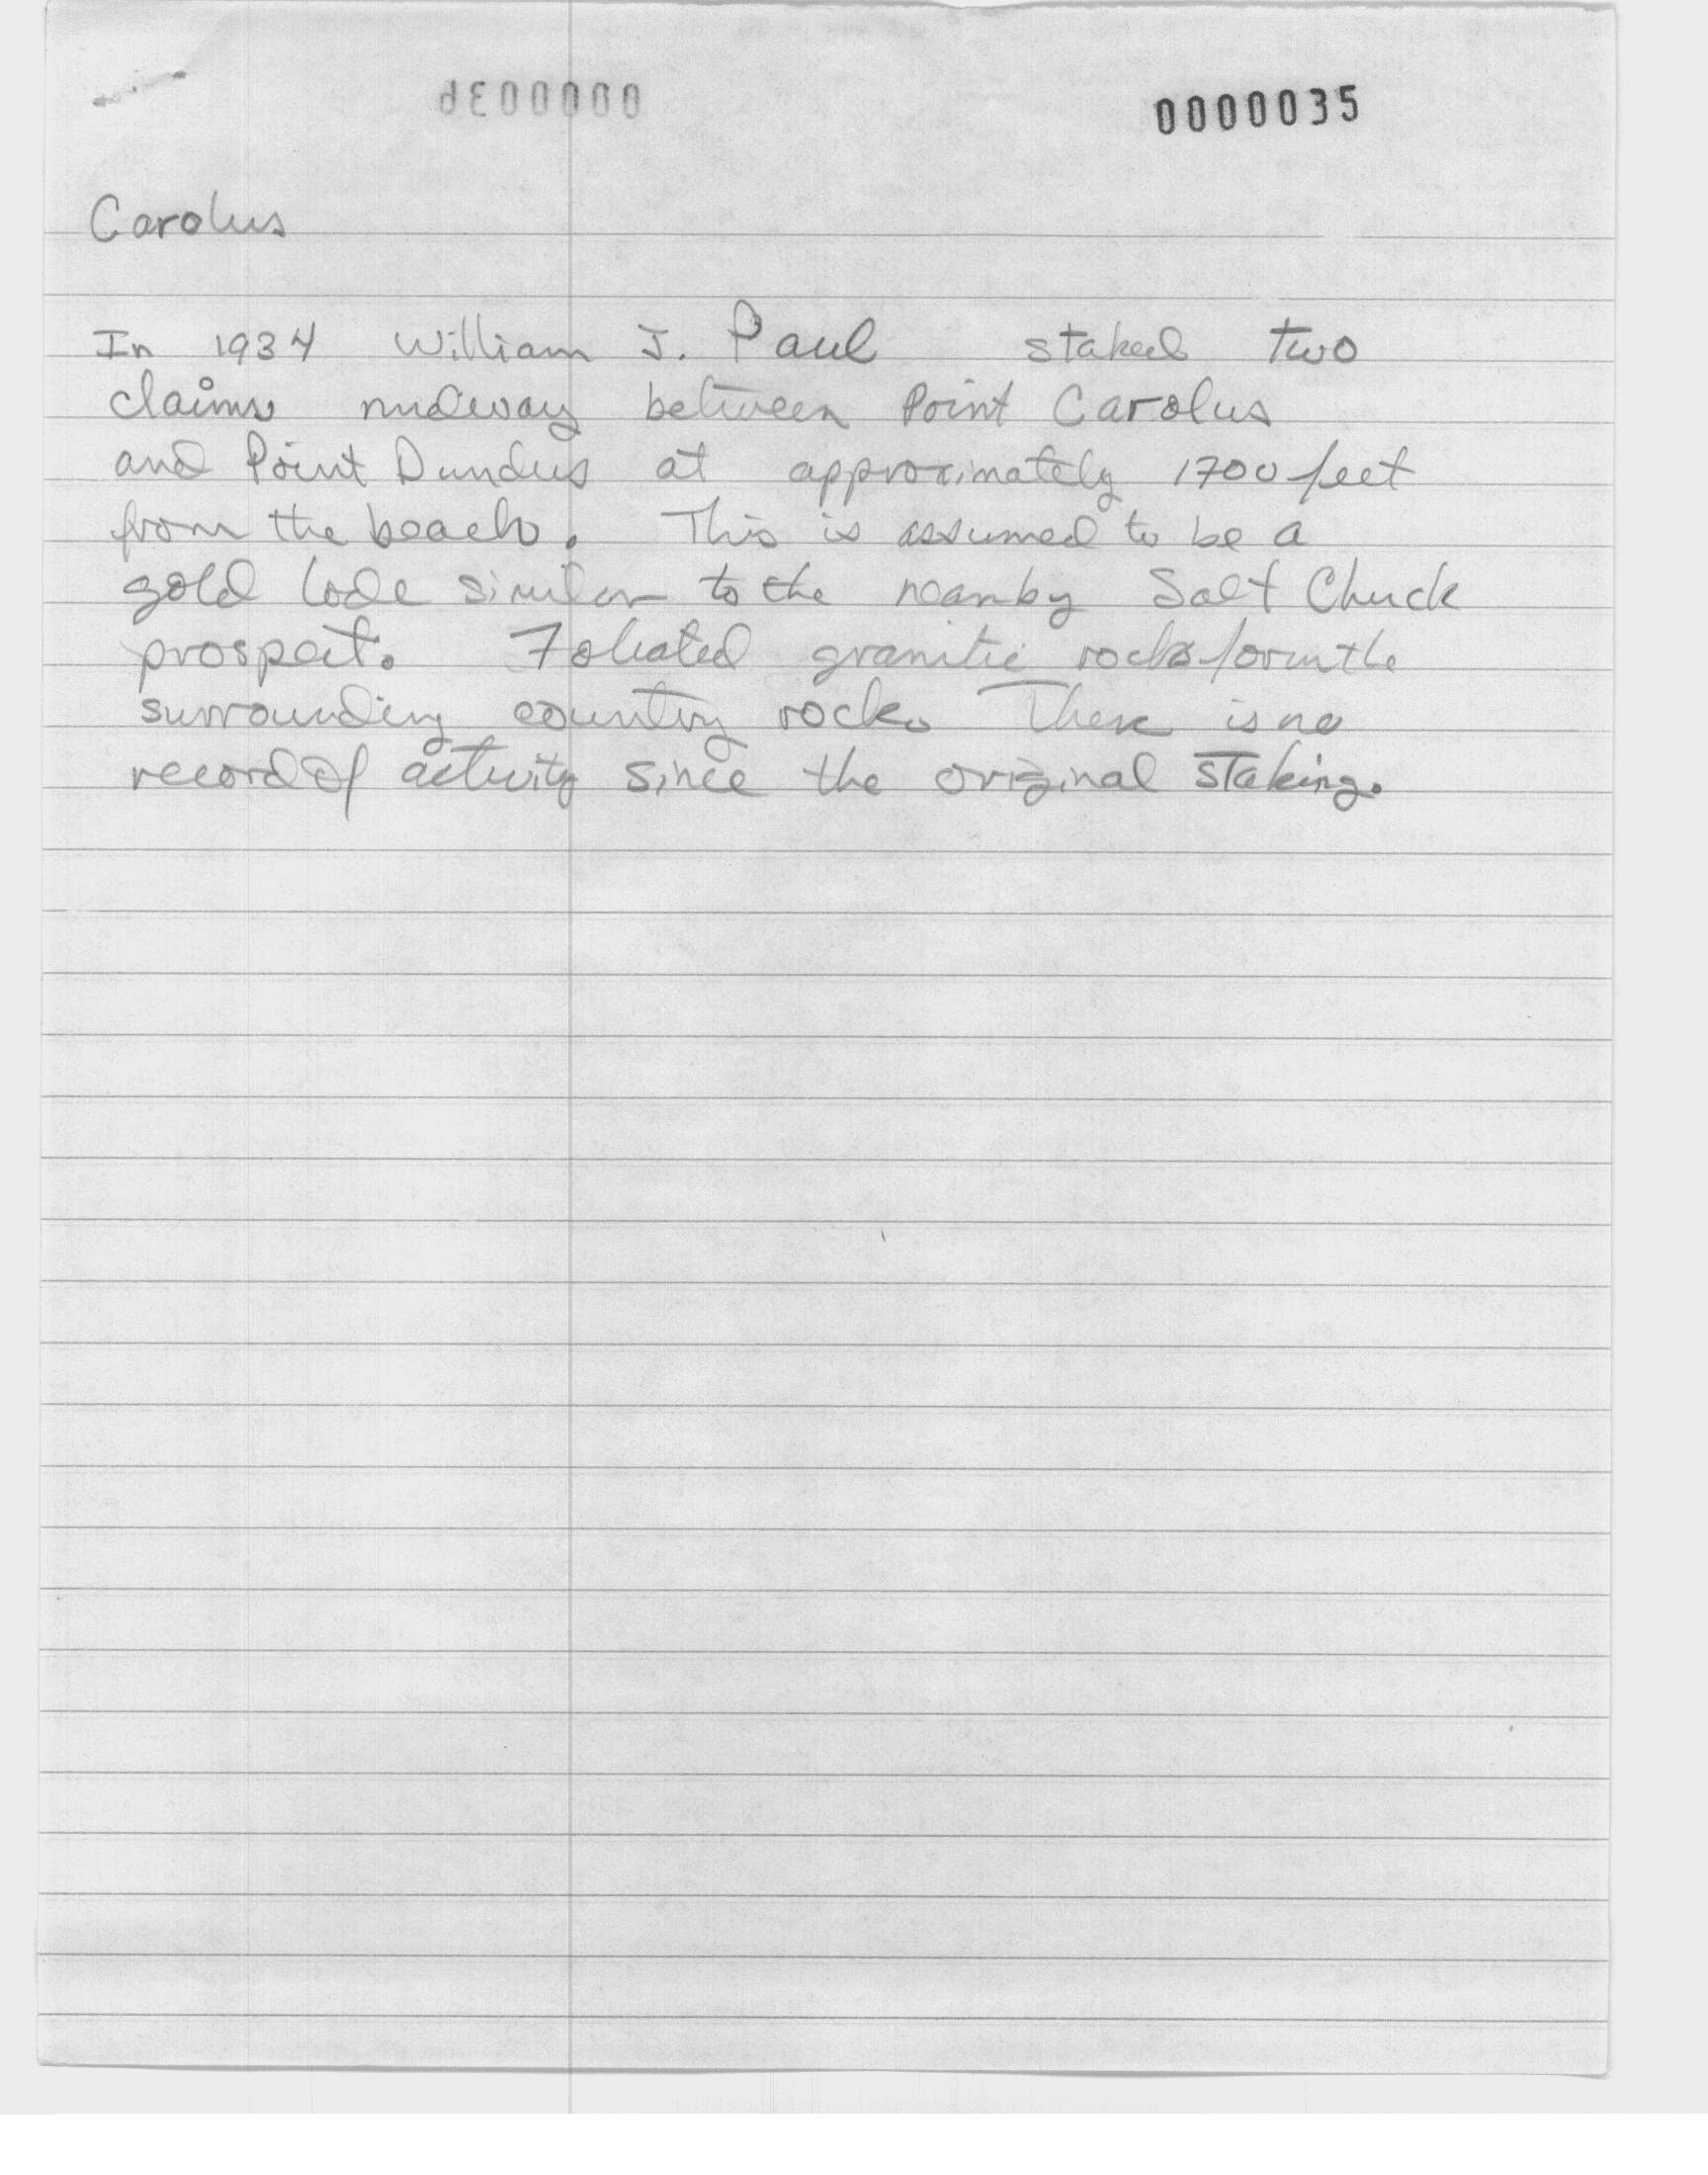 0000035
Carolus
In 1934 William J. Paul staked two
claims midway between Point Carolus
and Point Dundus at approximately 1700 feet
from the beach. This is assumed to be a
gold lode similar to the nearby Salt Chuck
prospect. Foliated granitic rocks form the
surrounding country rock. There is no
record of activity since the original staking.